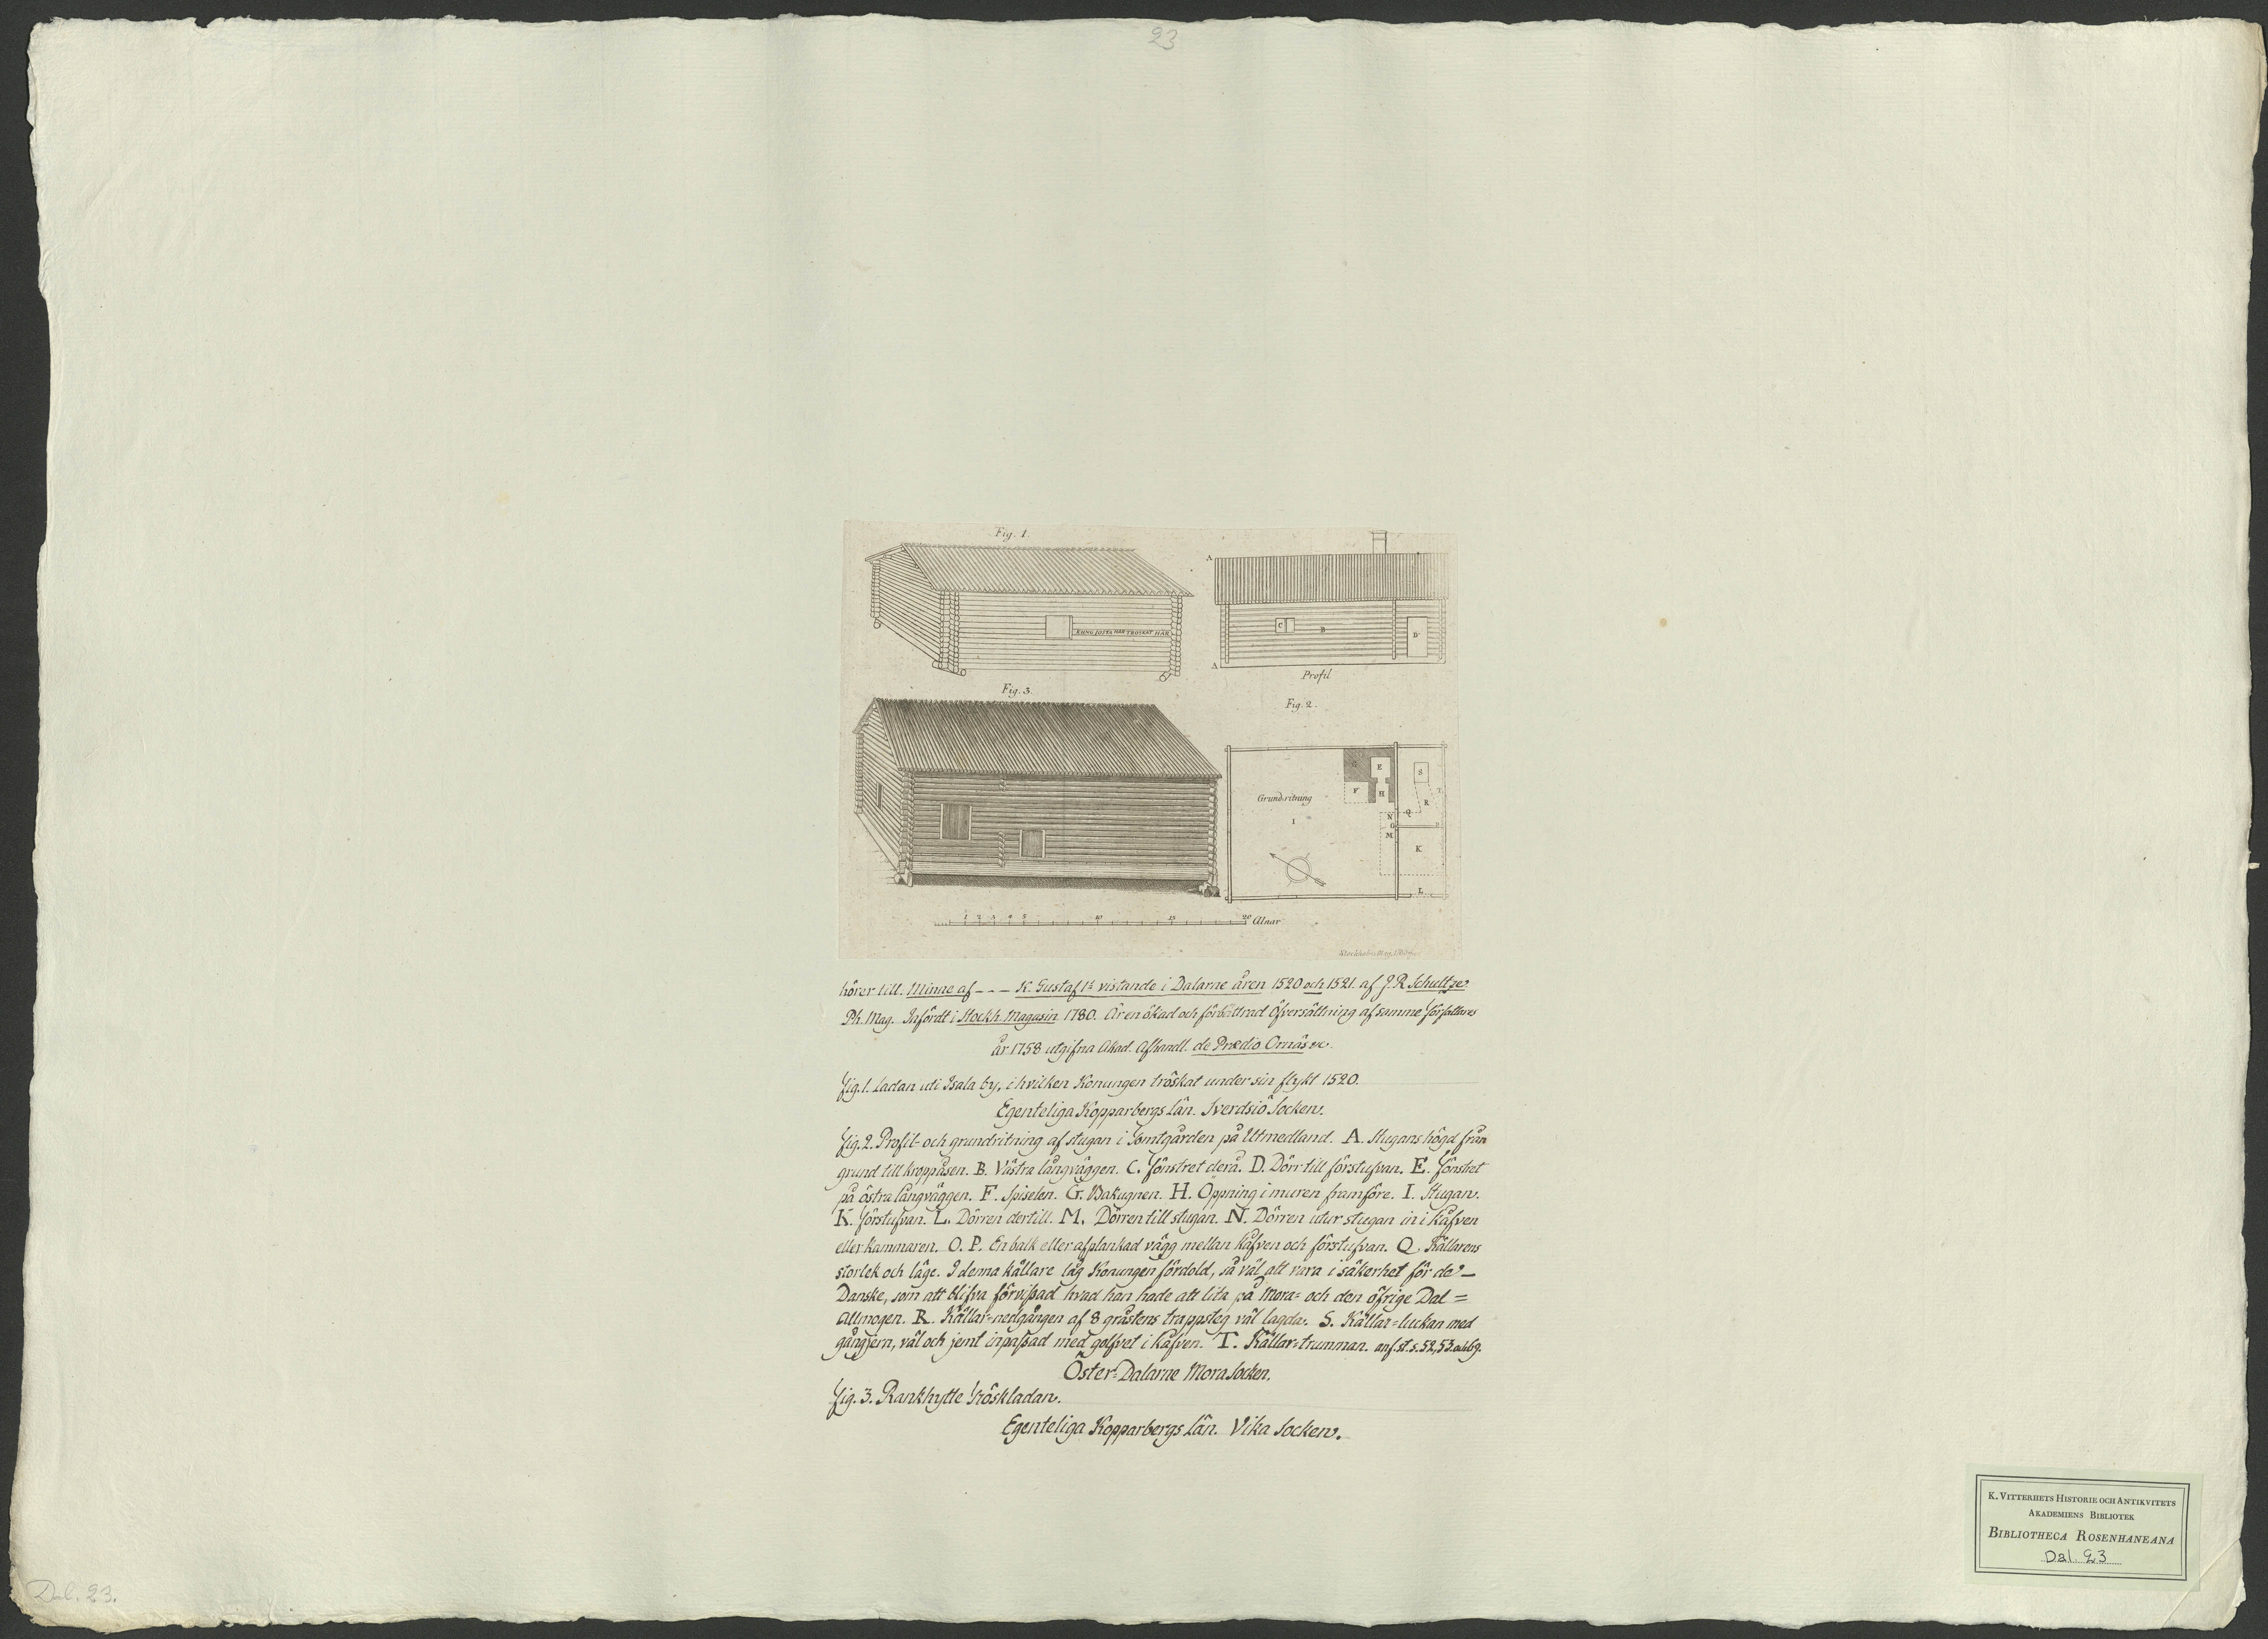 23
Fig. 1.
KUNG JOSTA HAR TROSKAT HÄR
A
C
B
D
A
Profil
Fig. 3.
Fig. 2.
G
E
S
F
H
T
R
Grundritning
Q
I
N
O
M
K
L
1 2 3 4 5 10 15 20 Alnar
hörer till. Minne af - - - K. Gustaf 1s vistande i Dalarne åren 1520 och 1521. af J. R. Schultze.
Ph. Mag. Infördt i Stockh. Magasin 1780. Är en ökad och förbättrad Öfversättning af samme författares
år 1758 utgifna Akad. Afhandl. de Prædio Ornäs etc.
Fig. 1. Ladan uti Isala by, i hvilken Konungen tröskat under sin flykt 1520.
Egenteliga Kopparbergs Län. Sverdsiö Socken.
Fig. 2. Profil- och grundritning af stugan i Tomtgården på Utmedland. A. Stugans högd från
grund till kroppåsen. B. Västra långväggen. C. Fönstret derå. D. Dörr till förstufvan. E. Fönstret
på östra långväggen. F. Spiselen. G. Bakugnen. H. Öppning i muren framföre. I. Stugan.
K. Förstufvan. L. Dörren dertill. M. Dörren till stugan. N. Dörren utur stugan in i Kåfven
eller Kammaren. O. P. En balk eller afplankad vägg mellan Kåfven och förstufvan. Q. Källarens
storlek och läge. I denna källare låg Konungen fördold, så väl att vara i säkerhet för de
Danske, som att blifva förvißad hvad han hade att lita på Mora= och den öfrige Dal=
Allmogen. R. Källar=nedgången af 8 gråstens trappsteg väl lagda. S. Källar=luckan med
gångjern, väl och jemt inpaßad med golfvet i Kåfven. T. Källar=trumman. anf. st. s. 52, 53.
Öster=Dalarne Mora Socken.
Fig. 3. Rankhytte Tröskladan.
Egenteliga Kopparbergs Län. Vika Socken.
K. VITTERHETS HISTORIE OCH ANTIKVITETS
AKADEMIENS BIBLIOTEK
BIBLIOTHECA ROSENHANEANA
Dal. 23
Dal. 23.